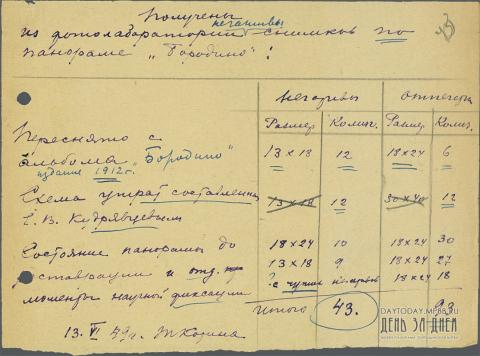 Получены
негативы
из фотолаборатории снимков по
панораме „Бородино“:
43
негативы отпечатки
Размер Колич. Размер Колич.
Переснято с
альбома „Бородино“ 13×18 12 18×24 6
издание 1912 г.
Схема утрат составленная 13×18 12 30×40 12
Е. В. Кудрявцевым
Состояние панорамы до 18×24 10 18×24 30
реставрации и отд. 13×18 9 18×24 27
моменты научной фиксации с чужих негативов 18×24 18
Итого 43. 93
13. VI 49 г.
DAYTODAY.MP88.RU
ДЕНЬ ЗА ДНЕМ